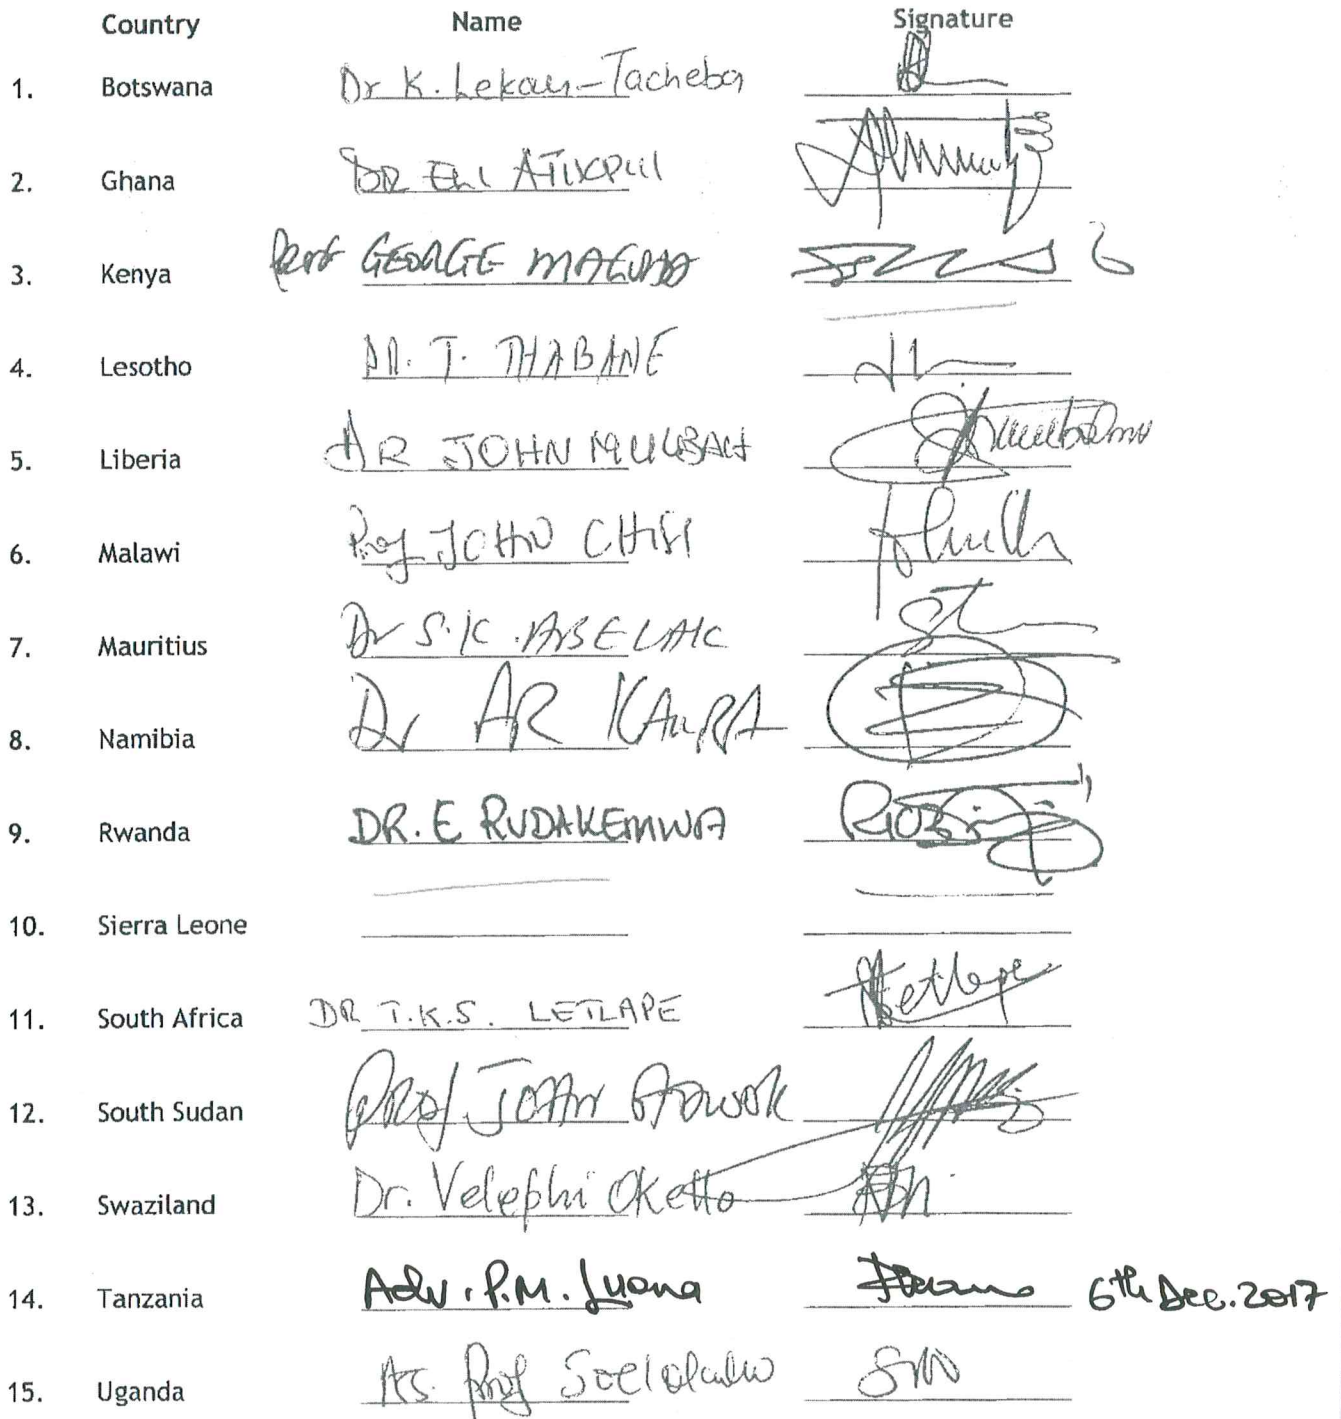 Country Name Signature
1. Botswana Dr K. Lekau-Tacheba
2. Ghana DR Eli ATIKPUI
3. Kenya Prof GEORGE MAGOHA
4. Lesotho DR. T. THABANE
5. Liberia DR JOHN MULBAH
6. Malawi Prof JOHN CHISI
7. Mauritius Dr S.K.
8. Namibia Dr AR KAURA
9. Rwanda DR. E RUDAKEMWA
10. Sierra Leone
11. South Africa DR T.K.S. LETLAPE Letlape
12. South Sudan PROF JOHN ADWOK
13. Swaziland Dr. Velephi Okello
14. Tanzania Adv. P.M. Luena 6th Dec. 2017
15. Uganda As. Prof